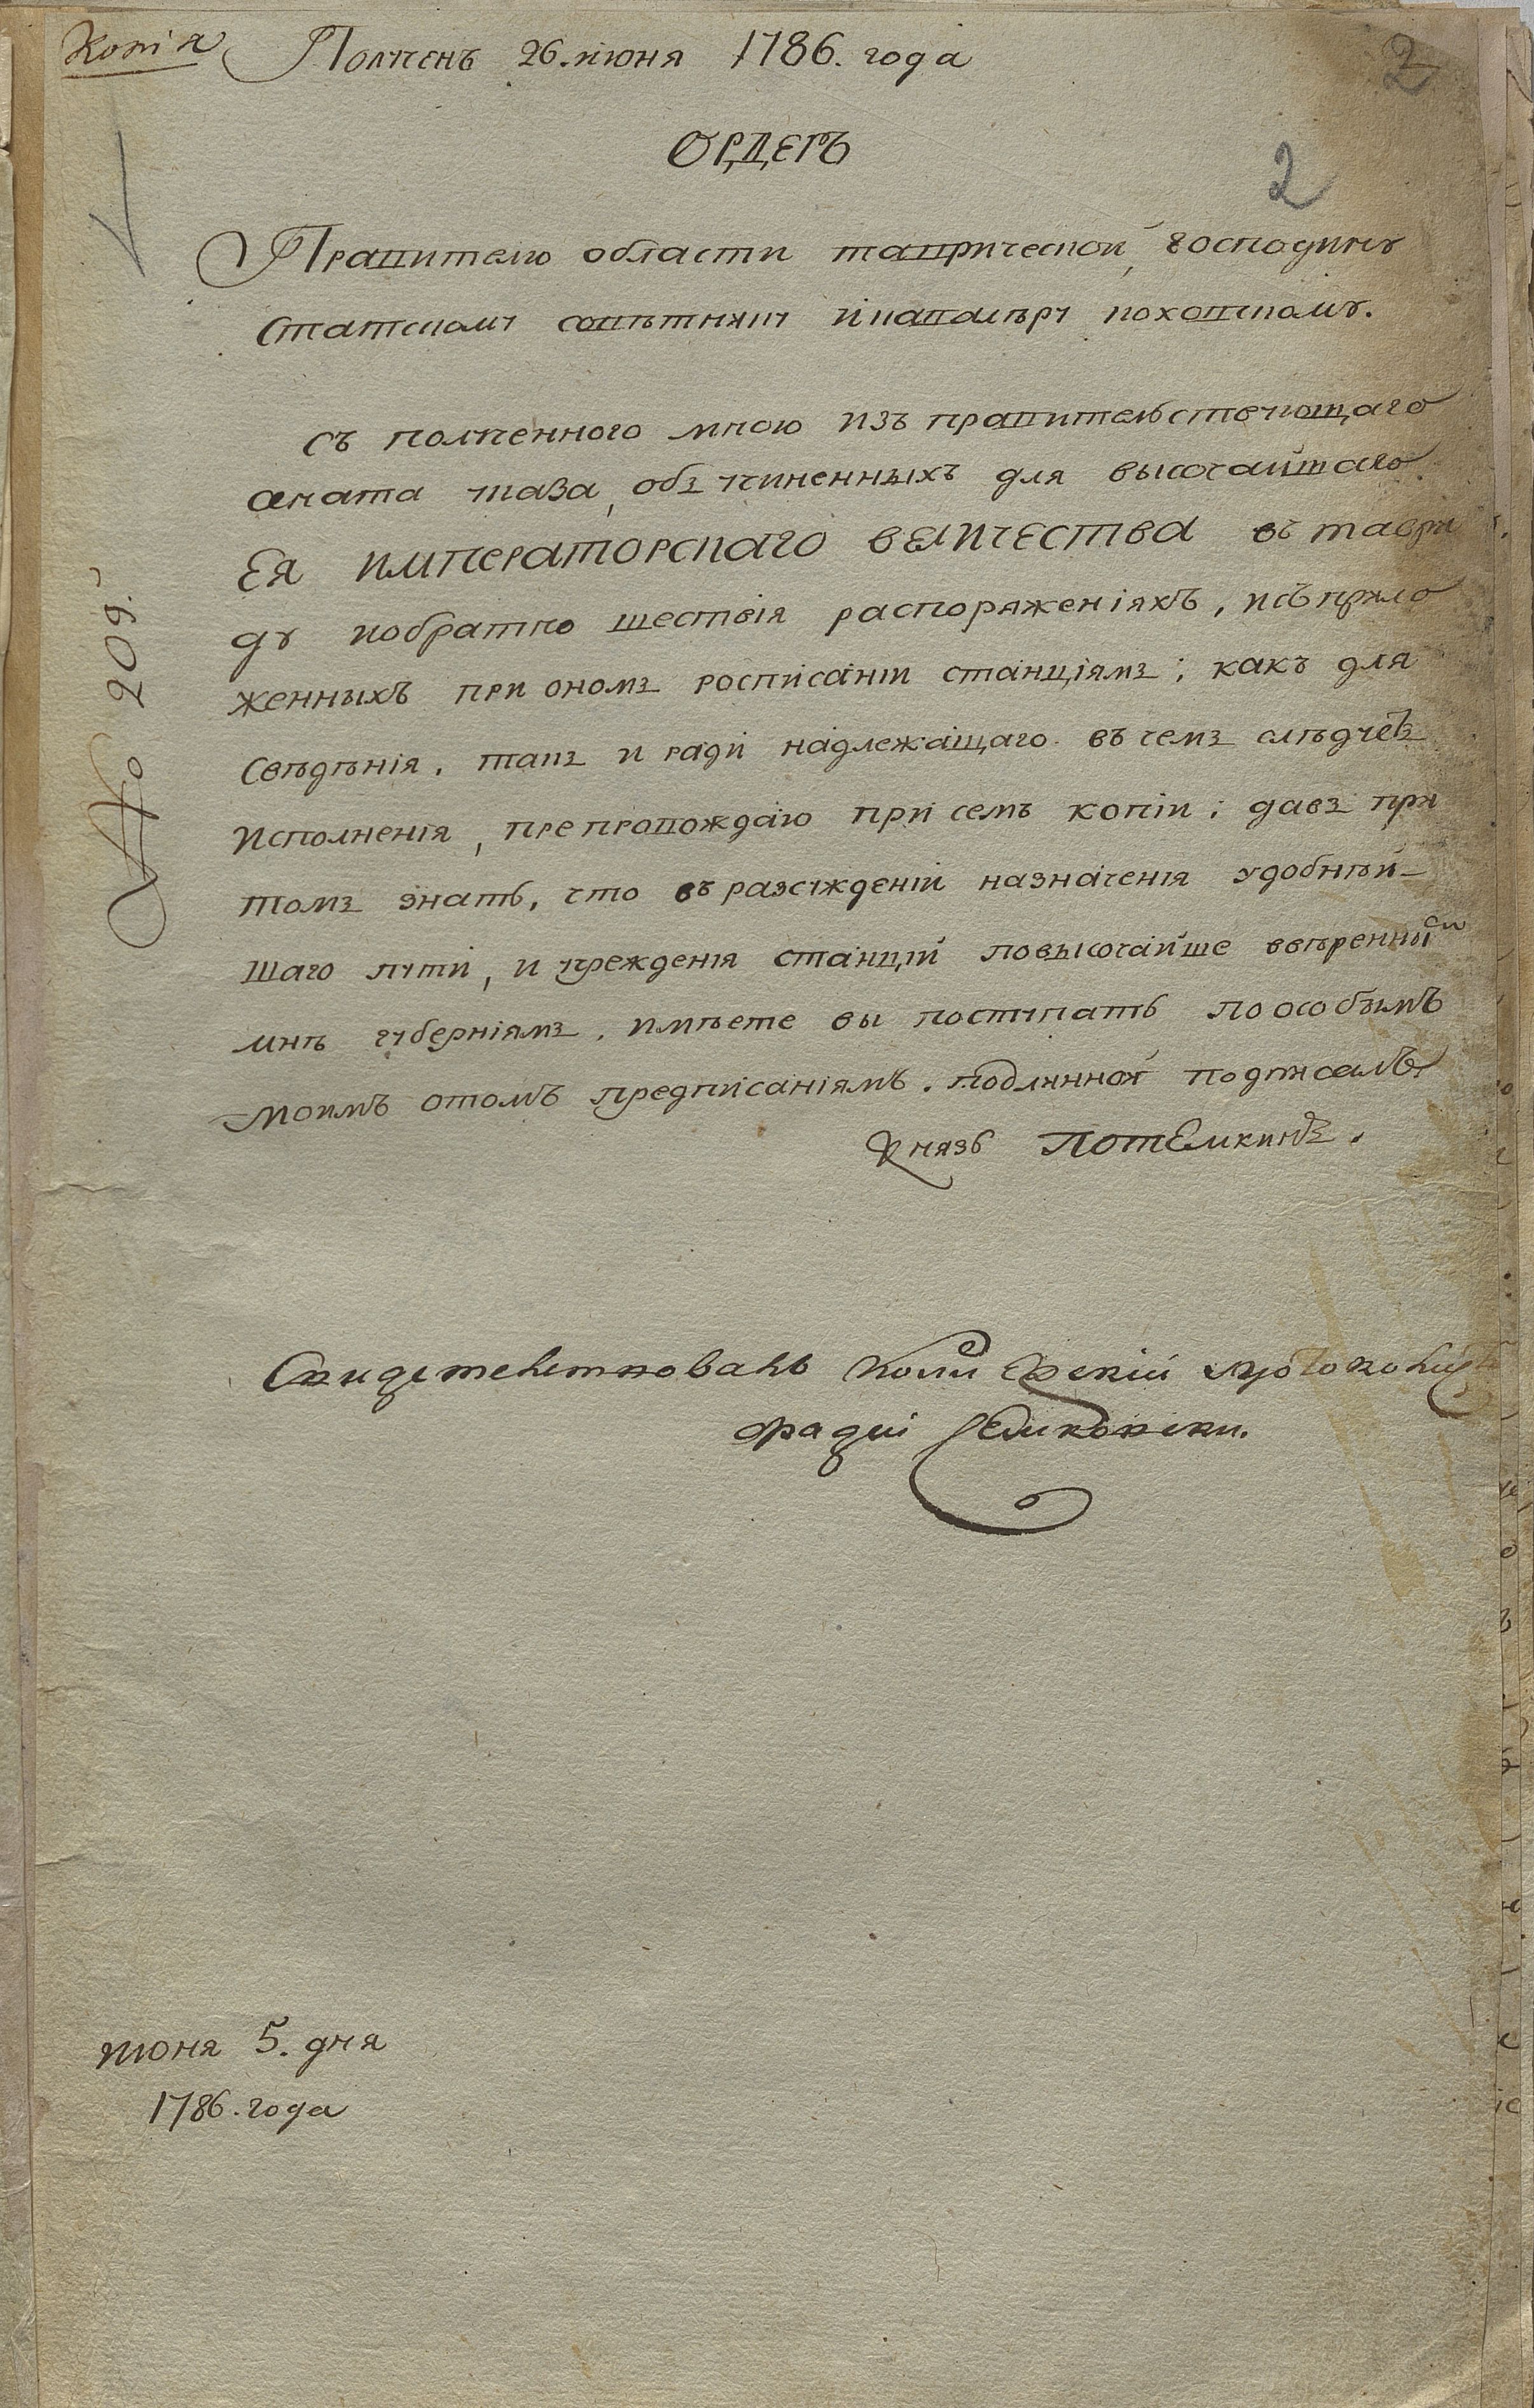 Копія
Полученъ 26. июня 1786. года
2
ОРДЕРЪ
2
Правителю области таврической, господину
статскому советнику и кавалеру коховскому.
съ полученного мною изъ правительствующаго
сената указа, объ учиненныхъ для высочайшаго
ЕЯ ИМПЕРАТОРСКАГО ВЕЛИЧЕСТВА въ таври
ду иобратно шествія распоряженіяхъ, исъ прило
женныхъ при ономъ росписаніи станціямъ; какъ для
сведѣнія, такъ и ради надлежащаго въ чемъ слѣдуетъ
исполненія, препровождаю при семъ копіи; давъ при
томъ знать, что въ разсужденіи назначенія удобнѣй-
шаго пути, и учрежденія станцій повысочайше ввѣреннымъ
мнѣ губерніямъ, имѣете вы поступать поособымъ
моимъ отомъ предписаніямъ. подлинной подписалъ
Князь ПотЕмкинъ.
№ 209.
Свидетелствовалъ Коллежскій протоколистъ
июня 5. дня
1786. года